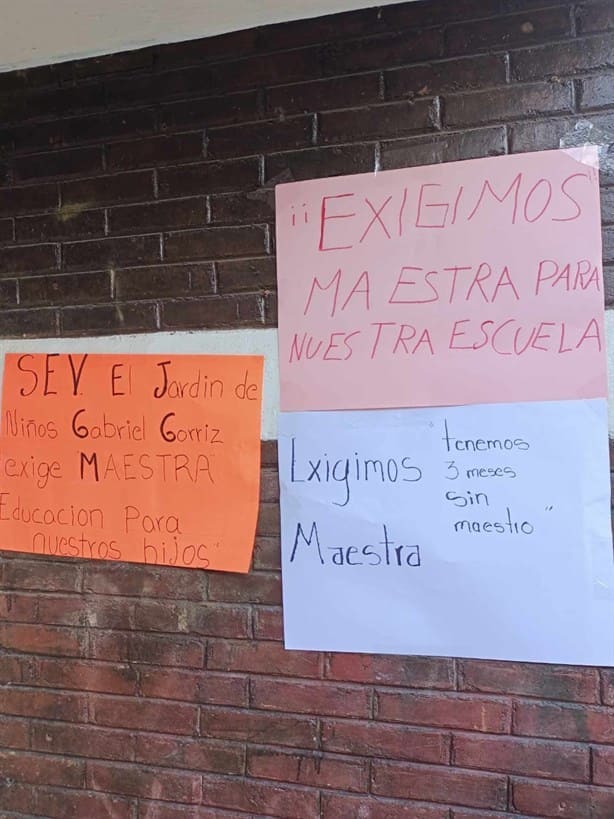 ¡¡EXIGIMOS"
MAESTRA PARA
NUESTRA ESCUELA
SEV. El Jardin de
Niños Gabriel Gorriz
exige "MAESTRA"
Educacion Para
nuestros hijos"
Exigimos
Maestra
"tenemos
3 meses
sin
maestro"